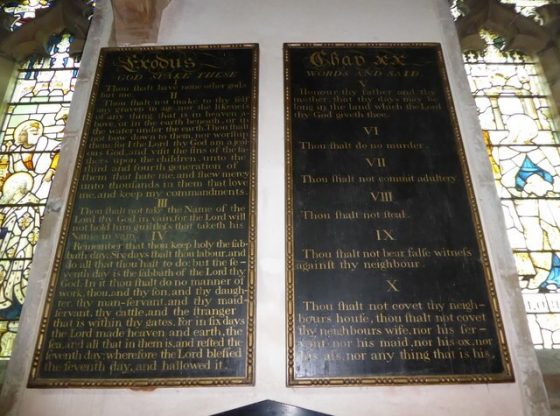 Exodus
GOD SPAKE THESE
Thou ſhalt have none other gods
but me.
II
Thou ſhalt not make to thy ſelf
any graven image, nor the likeneſs
of any thing that is in heaven a-
bove, or in the earth beneath, or in
the water under the earth. Thou ſhalt
not bow down to them, nor worſhip
them: for I the Lord thy God am a jea-
ous God, and viſit the ſins of the fa-
thers upon the children, unto the
third and fourth generation of
them that hate me; and ſhew mercy
unto thouſands in them that love
me, and keep my commandments.
III
Thou ſhalt not take the Name of the
Lord thy God in vain: for the Lord will
not hold him guiltleſs that taketh his
Name in vain.
IV
Remember that thou keep holy the ſab-
bath day. Six days ſhalt thou labour, and
do all that thou haſt to do; but the ſe-
venth day is the ſabbath of the Lord thy
God. In it thou ſhalt do no manner of
work, thou, and thy ſon, and thy daugh-
ter, thy man-ſervant, and thy maid-
ſervant, thy cattle, and the ſtranger
that is within thy gates. for in ſix days
the Lord made heaven and earth, the
ſea, and all that in them is, and reſted the
ſeventh day: wherefore the Lord bleſſed
the ſeventh day, and hallowed it.
Chap xx
WORDS AND SAID
Honour thy father and thy
mother, that thy days may be
long in the land which the Lord
thy God giveth thee.
VI
Thou ſhalt do no murder.
VII
Thou ſhalt not commit adultery.
VIII
Thou ſhalt not ſteal.
IX
Thou ſhalt not bear falſe witneſs
againſt thy neighbour.
X
Thou ſhalt not covet thy neigh-
bours houſe, thou ſhalt not covet
thy neighbours wife, nor his ſer-
vant nor his maid, nor his ox, nor
his aſs, nor any thing that is his.